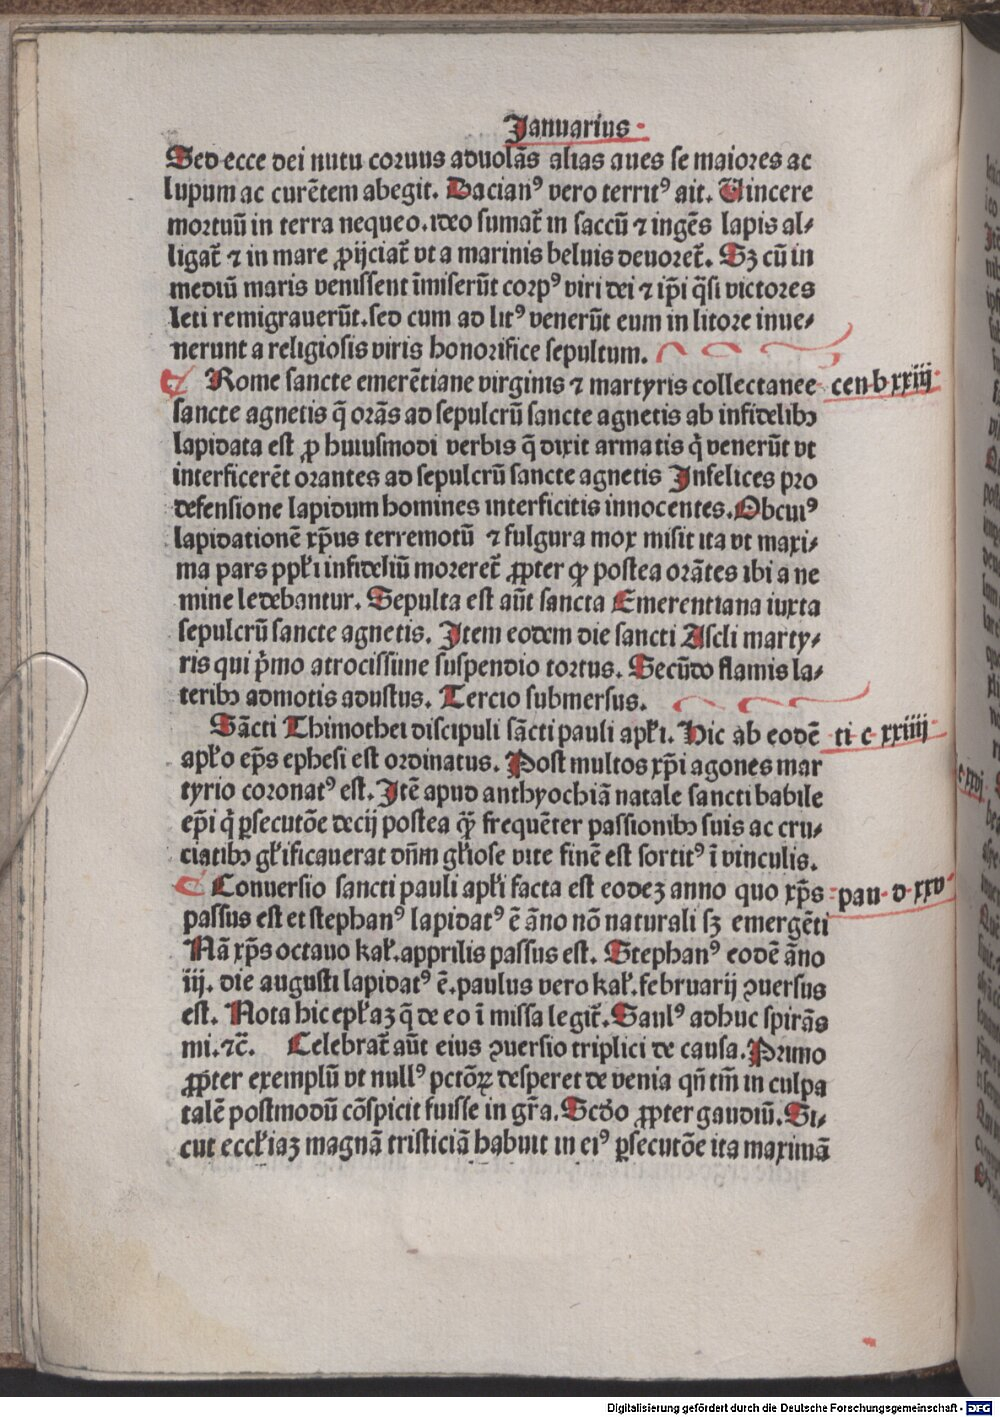 Januarius
Sed ecce dei nutu coruus aduolãs alias aues se maiores ac
lupum ac curẽtem abegit. Dacianꝰ vero territꝰ ait. Uincere
mortuũ in terra nequeo. ideo sumat̃ in saccũ ⁊ ingẽs lapis al⸗
ligat̃ ⁊ in mare ꝓijciat̃ vt a marinis beluis deuoret̃. Sꝫ cũ in
mediũ maris venissent ĩmiserũt corpꝰ viri dei ⁊ ip̃i q̃si victores
leti remigrauerũt. sed cum ad litꝰ venerũt eum in litore inue⸗
nerunt a religiosis viris honorifice sepultum.
Rome sancte emerẽtiane virginis ⁊ martyris collectanee
cen b xxiij
sancte agnetis q̃ orãs ad sepulcrũ sancte agnetis ab infidelibꝫ
lapidata est ꝓ huiusmodi verbis q̃ dixit armatis q̃ venerũt vt
interficerẽt orantes ad sepulcrũ sancte agnetis Infelices pro
defensione lapidum homines interficitis innocentes. Ob cuiꝰ
lapidationẽ xp̃us terremotũ ⁊ fulgura mox misit ita vt maxi⸗
ma pars ppłi infideliũ moreret̃ ꝓpter qꝫ postea orãtes ibi a ne
mine ledebantur. Sepulta est aũt sancta Emerentiana iuxta
sepulcrũ sancte agnetis. Item eodem die sancti Ascli marty⸗
ris qui p̃mo atrocissime suspendio tortus. Secũdo flamis la⸗
teribꝫ admotis adustus. Tercio submersus.
Sãcti Thimothei discipuli sãcti pauli apłi. Hic ab eodẽ
ti c xxiiij
apło ep̃s ephesi est ordinatus. Post multos xp̃i agones mar
tyrio coronatꝰ est. Itẽ apud anthyochiã natale sancti babile
ep̃i q̃ ꝑsecutõe decij postea qꝫ̃ frequẽter passionibꝫ suis ac cru⸗
ciatibꝫ głificauerat dñm głiose vite finẽ est sortitꝰ ĩ vinculis.
Conuersio sancti pauli apłi facta est eodeꝫ anno quo xp̃s
pau d xxv
passus est et stephanꝰ lapidatꝰ ẽ ãno nõ naturali sꝫ emergẽti
Nã xp̃s octauo kał. apprilis passus est. Stephanꝰ eodẽ ãno
iij. die augusti lapidatꝰ ẽ. paulus vero kał. februarij ꝯuersus
est. Nota hic epłaꝫ q̃ de eo ĩ missa legit̃. Saulꝰ adhuc spirãs
mi. ⁊c̃. Celebrat̃ aũt eius ꝯuersio triplici de causa. Primo
ꝓpter exemplũ vt nullꝰ pctõꝝ desperet de venia qñ tm̃ in culpa
talẽ postmodũ cõspicit fuisse in gr̃a. Scd̃o ꝓpter gaudiũ. Si⸗
cut eccłiaꝫ magnã tristiciã habuit in eiꝰ ꝑsecutõe ita maximã
c xxvj
Digitalisierung gefördert durch die Deutsche Forschungsgemeinschaft - DFG